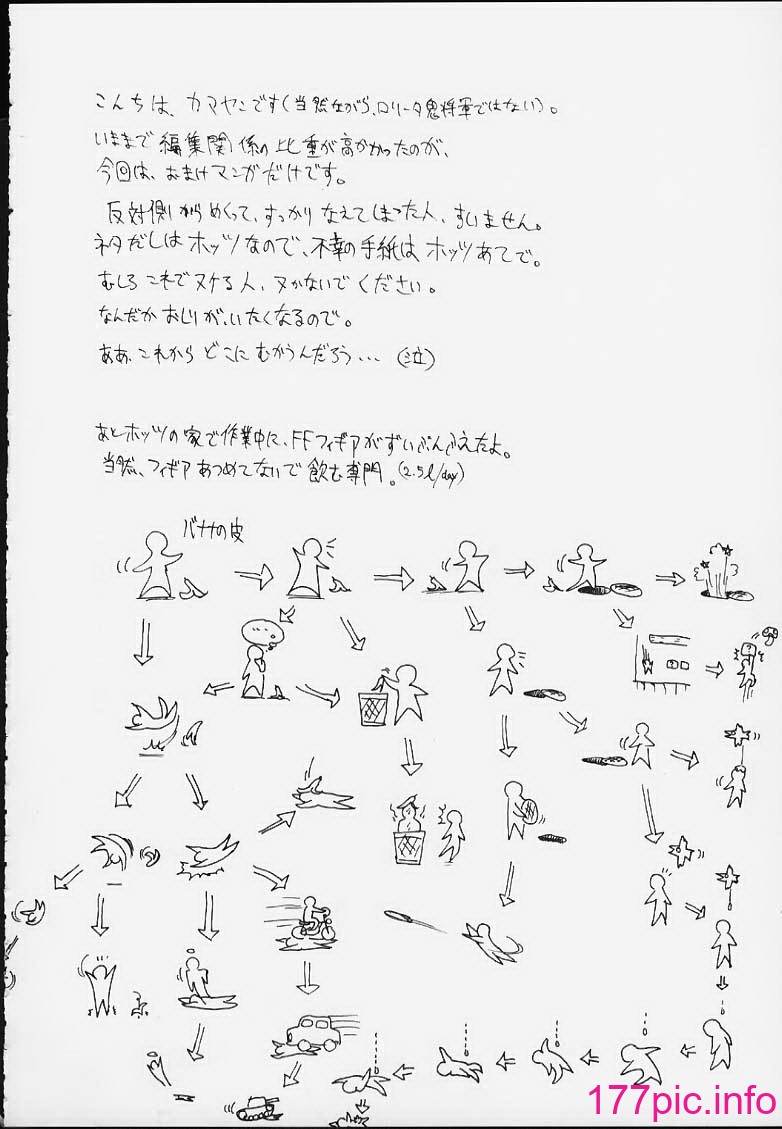 こんちは、カマヤンです(当然ながら、ロリータ鬼将軍ではない)。
いままで編集関係の比重が高かったのが、
今回は、おまけマンガだけです。
反対側からめくって、すっかりなえてしまった人、すいません。
ネタだしはホッツなので、不幸の手紙はホッツあてで。
むしろこれでヌケる人、ヌかないでください。
なんだかおしりが、いたくなるので。
ああ、これからどこにむかうんだろう・・・(泣)
あとホッツの家で作業中に、FFフィギアがずいぶんふえたよ。
当然、フィギアあつめてないで飲む専門。(2.5l/day)
バナナの皮
...
?
177pic.info